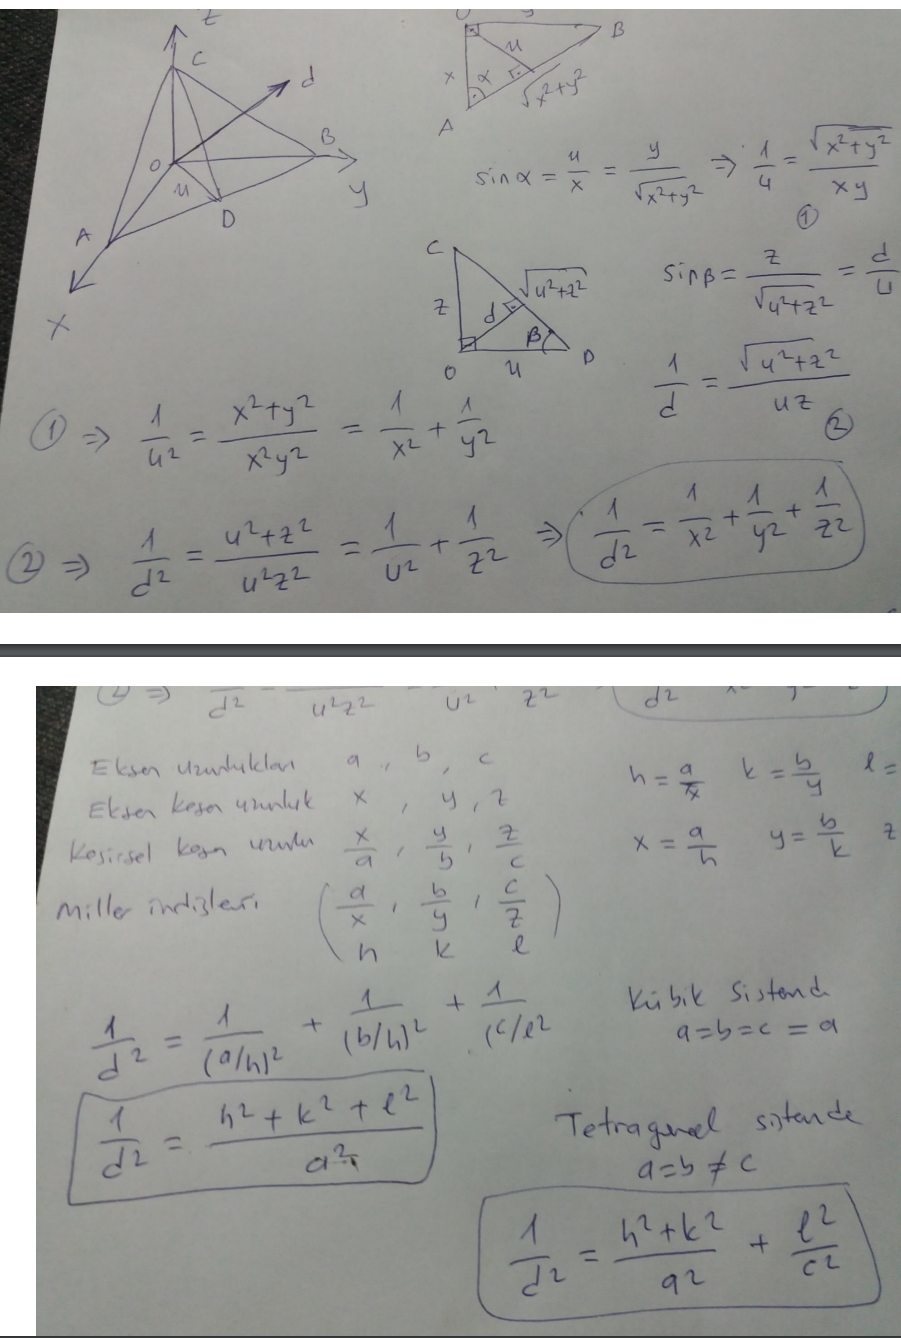 z
C
d
O
B
u
y
D
A
x
y
B
u
x
α
√x²+y²
A
sinα = u/x = y/√x²+y² ⇒ 1/u = √x²+y²/xy
①
C
√u²+z²
z
d
β
O
u
D
sinβ = z/√u²+z² = d/u
1/d = √u²+z²/uz
②
① ⇒ 1/u² = x²+y²/x²y² = 1/x² + 1/y²
② ⇒ 1/d² = u²+z²/u²z² = 1/u² + 1/z² ⇒ 1/d² = 1/x² + 1/y² + 1/z²
② ⇒ d² u²z² u² z² d²
Eksen uzunlukları a, b, c
Eksen kesen uzunluk x, y, z
Kesirsel kesen uzunlu x/a, y/b, z/c
Miller indisleri (a/x, b/y, c/z)
h k l
h = a/x k = b/y l =
x = a/h y = b/k z
1/d² = 1/(a/h)² + 1/(b/h)² + 1/(c/l²
Kübik Sistemde
a=b=c=a
1/d² = h²+k²+l²/a²
Tetragonal sistemde
a=b≠c
1/d² = h²+k²/a² + l²/c²